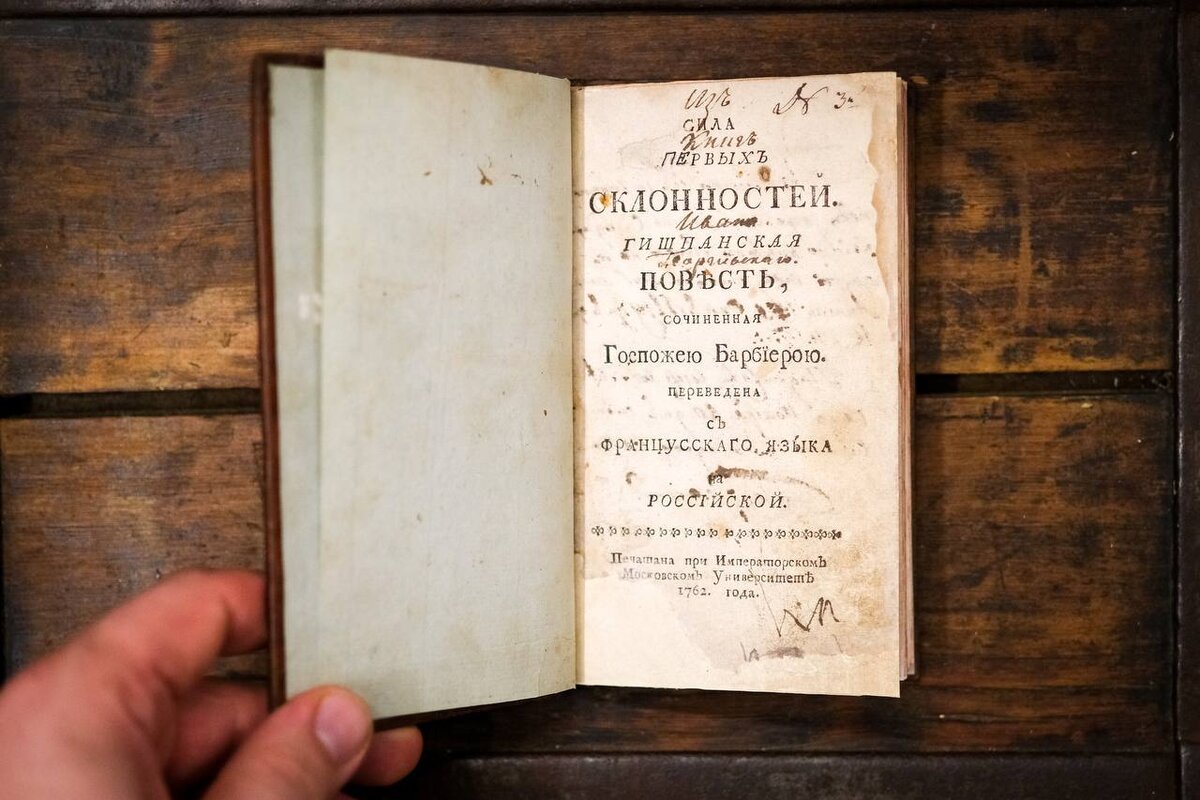 Изъ № 3й
СИЛА
Книгъ
ПЕРВЫХЪ
СКЛОННОСТЕЙ.
Ивана
ГИШПАНСКАЯ
ПОВѢСТЬ,
СОЧИНЕННАЯ
Госпожею Барбіерою.
ПЕРЕВЕДЕНА
съ
ФРАНЦУССКАГО ЯЗЫКА
на
РОССІЙСКОЙ.
Печатана при Императорскомъ
Московскомъ Университетѣ
1762. года.